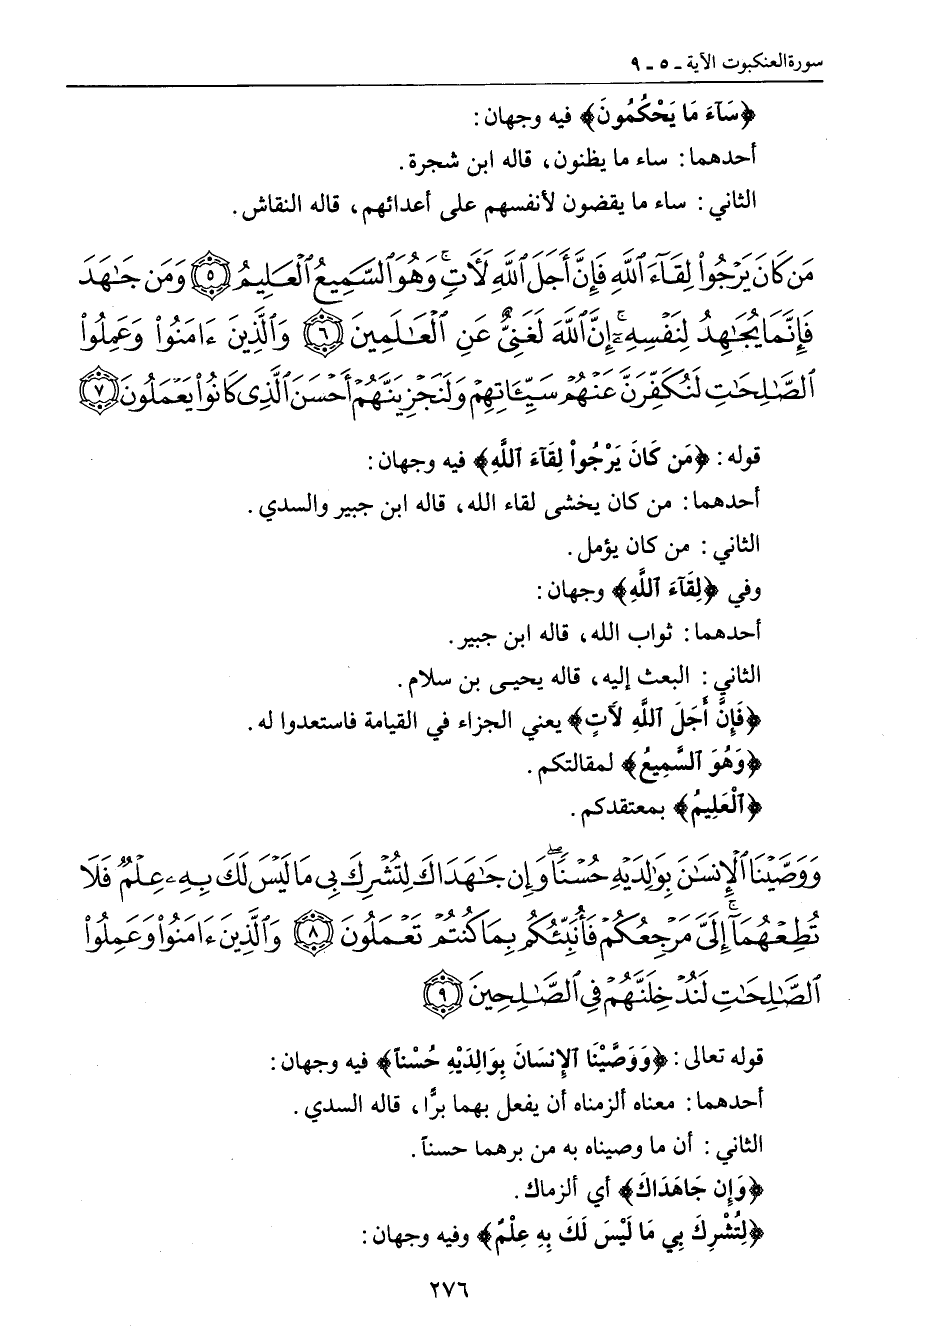 سورة العنكبوت الآية ـ ٥ ـ ٩
﴿سَآءَ مَا يَحْكُمُونَ﴾ فيه وجهان:
أحدهما: ساء ما يظنون، قاله ابن شجرة.
الثاني: ساء ما يقضون لأنفسهم على أعدائهم، قاله النقاش.
مَن كَانَ يَرْجُوا۟ لِقَآءَ ٱللَّهِ فَإِنَّ أَجَلَ ٱللَّهِ لَأَتٍۚ وَهُوَ ٱلسَّمِيعُ ٱلْعَلِيمُ ٥ وَمَن جَٰهَدَ
فَإِنَّمَا يُجَٰهِدُ لِنَفْسِهِۦٓۚ إِنَّ ٱللَّهَ لَغَنِىٌّ عَنِ ٱلْعَٰلَمِينَ ٦ وَٱلَّذِينَ ءَامَنُوا۟ وَعَمِلُوا۟
ٱلصَّٰلِحَٰتِ لَنُكَفِّرَنَّ عَنْهُمْ سَيِّـَٔاتِهِمْ وَلَنَجْزِيَنَّهُمْ أَحْسَنَ ٱلَّذِى كَانُوا۟ يَعْمَلُونَ ٧
قوله: ﴿مَن كَانَ يَرْجُوا۟ لِقَآءَ ٱللَّهِ﴾ فيه وجهان:
أحدهما: من كان يخشى لقاء الله، قاله ابن جبير والسدي.
الثاني: من كان يؤمل.
وفي ﴿لِقَآءَ ٱللَّهِ﴾ وجهان:
أحدهما: ثواب الله، قاله ابن جبير.
الثاني: البعث إليه، قاله يحيى بن سلام.
﴿فَإِنَّ أَجَلَ ٱللَّهِ لَآتٍ﴾ يعني الجزاء في القيامة فاستعدوا له.
﴿وَهُوَ ٱلسَّمِيعُ﴾ لمقالتكم.
﴿ٱلْعَلِيمُ﴾ بمعتقدكم.
وَوَصَّيْنَا ٱلْإِنسَٰنَ بِوَٰلِدَيْهِ حُسْنًاۖ وَإِن جَٰهَدَاكَ لِتُشْرِكَ بِى مَا لَيْسَ لَكَ بِهِۦ عِلْمٌ فَلَا
تُطِعْهُمَآۚ إِلَىَّ مَرْجِعُكُمْ فَأُنَبِّئُكُم بِمَا كُنتُمْ تَعْمَلُونَ ٨ وَٱلَّذِينَ ءَامَنُوا۟ وَعَمِلُوا۟
ٱلصَّٰلِحَٰتِ لَنُدْخِلَنَّهُمْ فِى ٱلصَّٰلِحِينَ ٩
قوله تعالى: ﴿وَوَصَّيْنَا ٱلإِنسَانَ بِوَالِدَيْهِ حُسْناً﴾ فيه وجهان:
أحدهما: معناه ألزمناه أن يفعل بهما برًّا، قاله السدي.
الثاني: أن ما وصيناه به من برهما حسناً.
﴿وَإِن جَاهَدَاكَ﴾ أي ألزماك.
﴿لِتُشْرِكَ بِي مَا لَيْسَ لَكَ بِهِ عِلْمٌ﴾ وفيه وجهان:
٢٧٦